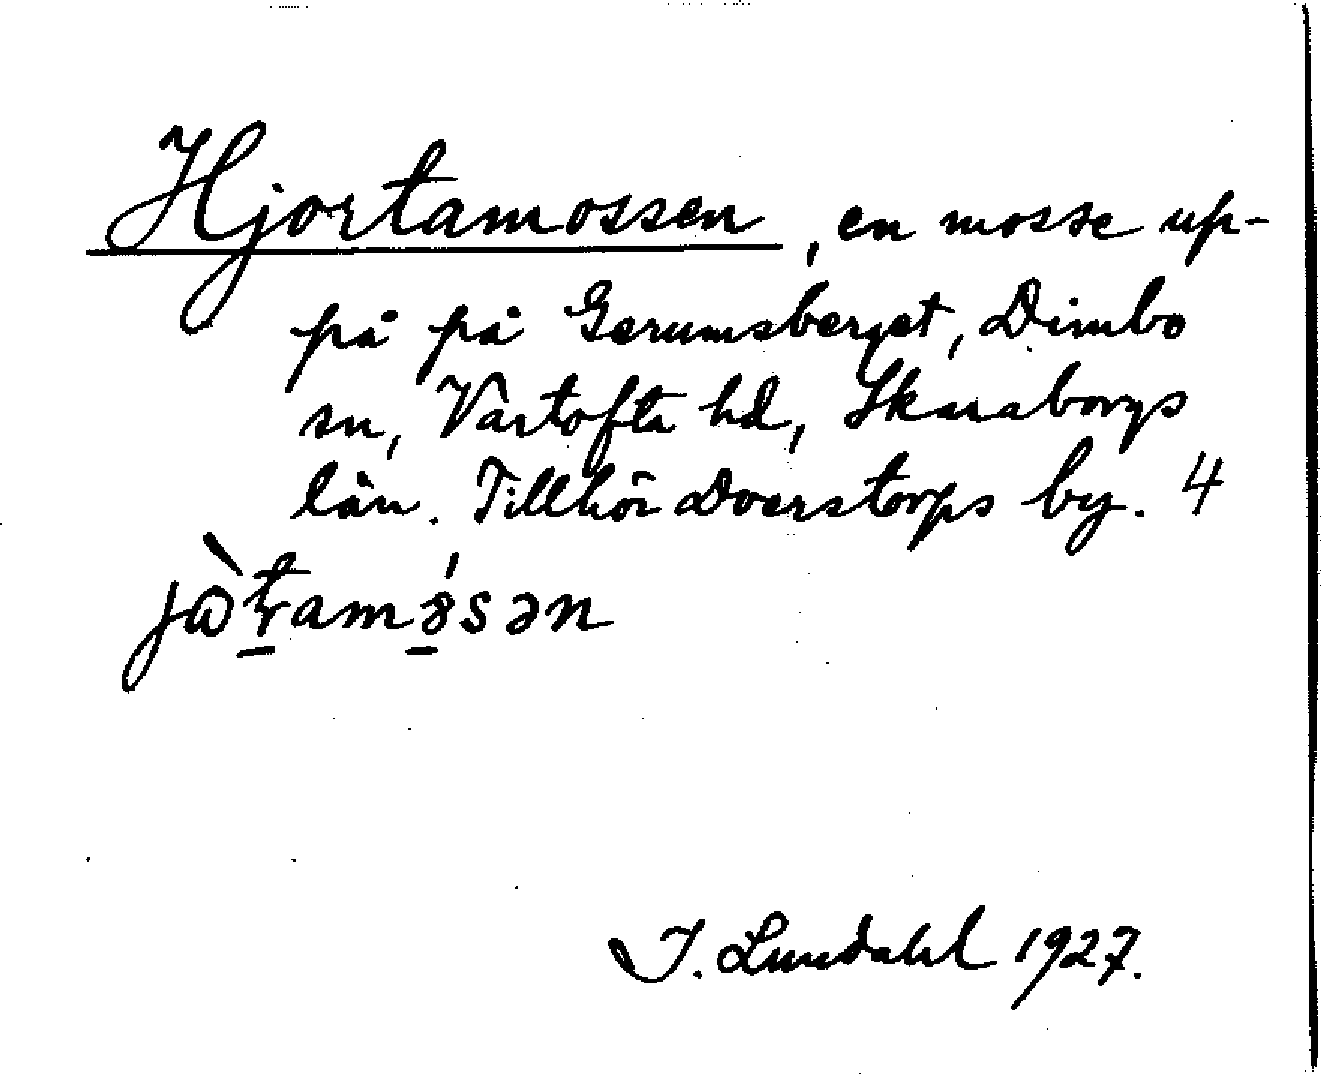 Hjortamossen, en mosse up-
på på Gerumsberget, Dimbo
sn, Vartofta hd, Skaraborgs
län. Tillhör Doverstorps by. 4
I. Lundahl 1927.